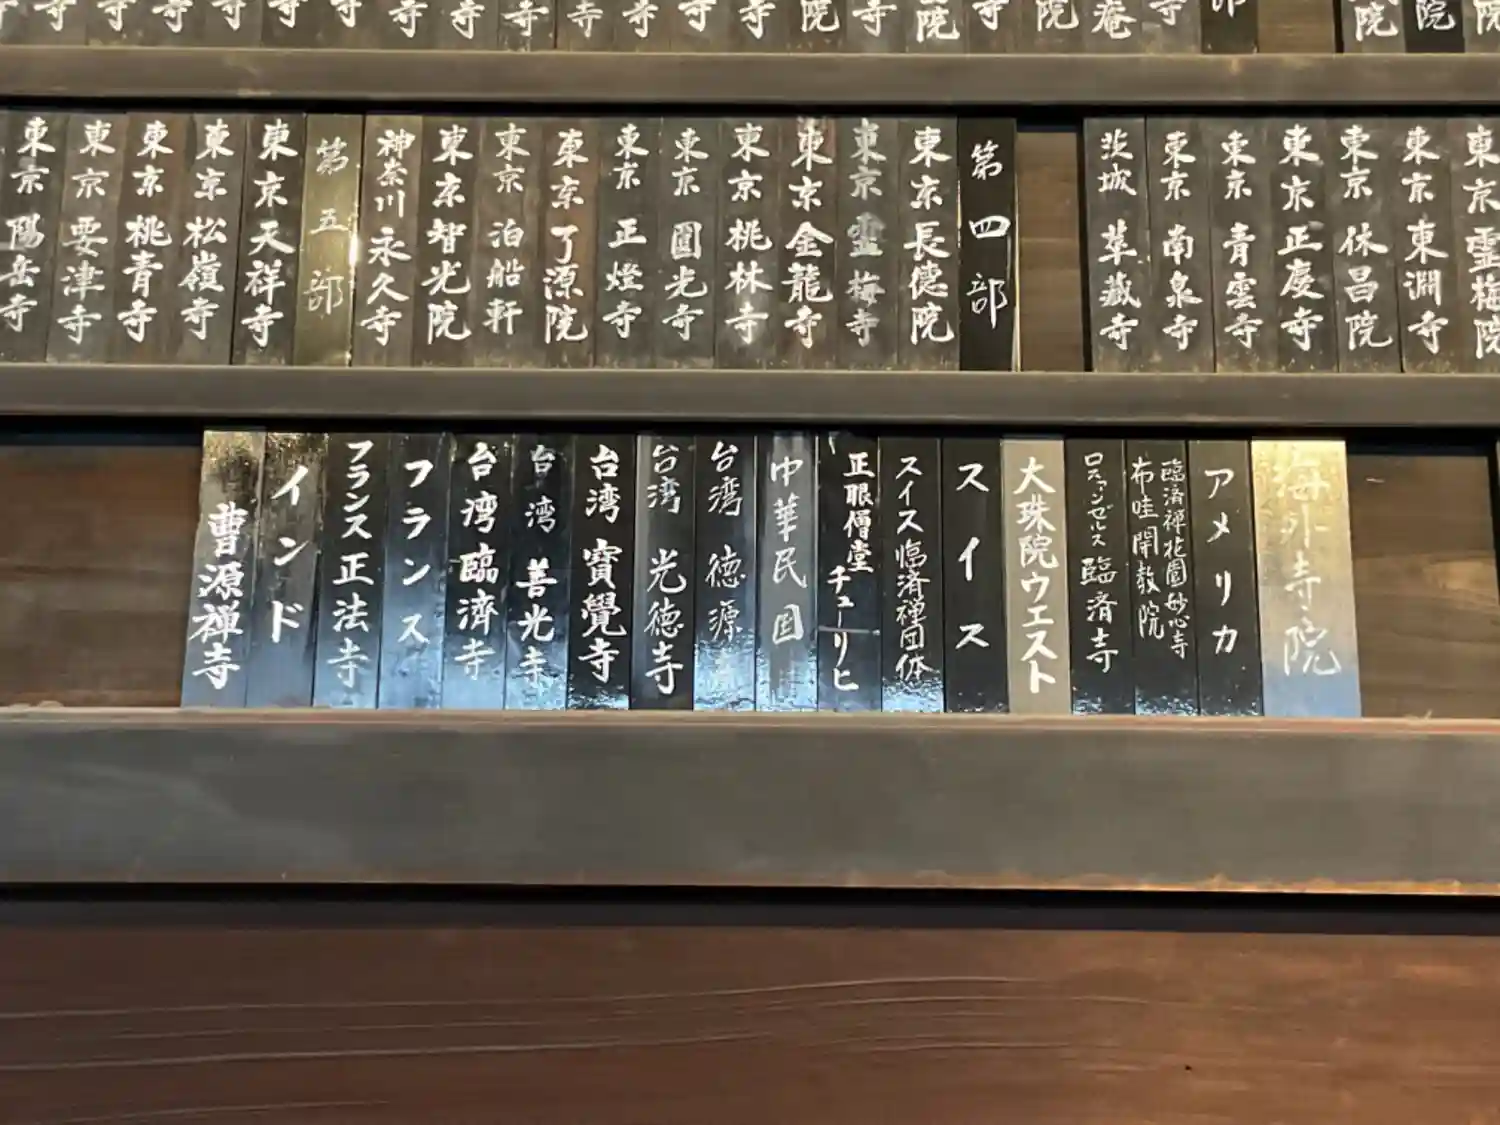 霊梅院
東京 東淵寺
東京 休昌院
東京 正慶寺
東京 青雲寺
東京 南泉寺
茨城 草蔵寺
第四部
東京 長徳院
東京 霊梅寺
東京 金龍寺
東京 桃林寺
東京 圓光寺
東京 正燈寺
東京 了源院
東京 泊船軒
東京 智光院
神奈川 永久寺
第五部
東京 天祥寺
東京 松嶺寺
東京 桃青寺
東京 要津寺
東京 陽岳寺
海外寺院
アメリカ
臨済禅花園妙心寺
布哇開教院
ロスアンゼルス 臨済寺
大珠院ウエスト
スイス
スイス臨済禅団体
正眼僧堂 チューリヒ
中華民国
台湾 徳源寺
台湾 光徳寺
台湾 寶覺寺
台湾 善光寺
台湾 臨濟寺
フランス
フランス 正法寺
インド
曹源禅寺